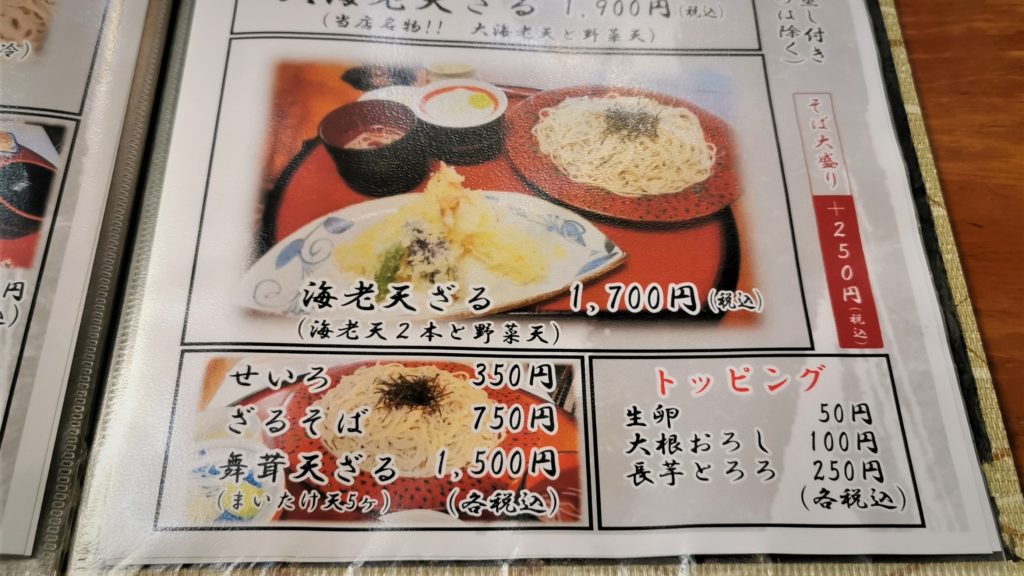 海老天ざる 1,900円(税込)
(当店名物!! 大海老天と野菜天)
蒸し付き
は除く)
そば大盛り
+250円(税込)
海老天ざる 1,700円(税込)
(海老天2本と野菜天)
せいろ 350円
ざるそば 750円
舞茸天ざる 1,500円
(まいたけ天5ヶ) (各税込)
トッピング
生卵 50円
大根おろし 100円
長芋とろろ 250円
(各税込)
冷)
円